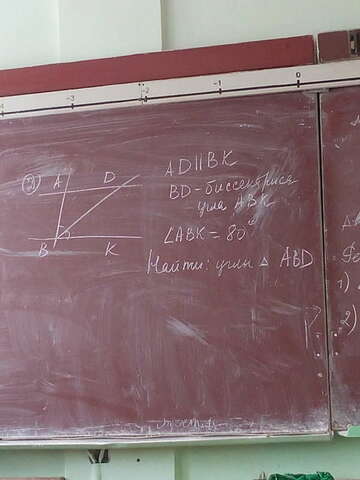 -3 -2 -1 0
3) A D
B K
AD||BK
BD - биссектриса
угла ABK
∠ABK = 80°
Найти: углы △ ABD
1)
2)